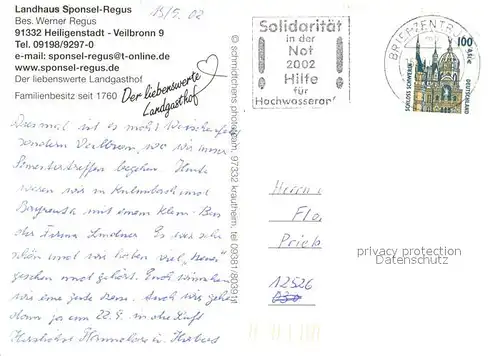 Landhaus Sponsel-Regus
Bes. Werner Regus
91332 Heiligenstadt - Veilbronn 9
Tel. 09198/9297-0
e-mail: sponsel-regus@t-online.de
www.sponsel-regus.de
Der liebenswerte Landgasthof
Familienbesitz seit 1760
Der liebenswerte
Landgasthof
13/9. 02
© schmidtomens photodesign, 97332 krautheim, tel 09381/803911
Solidarität
in der
Not
2002
Hilfe
für
Hochwasserop
BRIEFZENTRUM
100
SCHLOSS SCHWERIN
DEUTSCHLAND
Diesmal ist es nicht
sondern Veilbronn, wo wir unser
Semestertreffen begehen. Heute
waren wir in Kulmbach und
Bayreuth mit einem klein. Bus
der Firma Lindner. Es war sehr
schön und wir haben viel „
gesehen und gehört. Euch wünschen
wir eine gute
. Auch wir
dann ja am 22.9. in die Luft
Herzlichst Hannelore u. Herbert
Herrn
Flo
Prieb
12526
privacy protection
Datenschutz